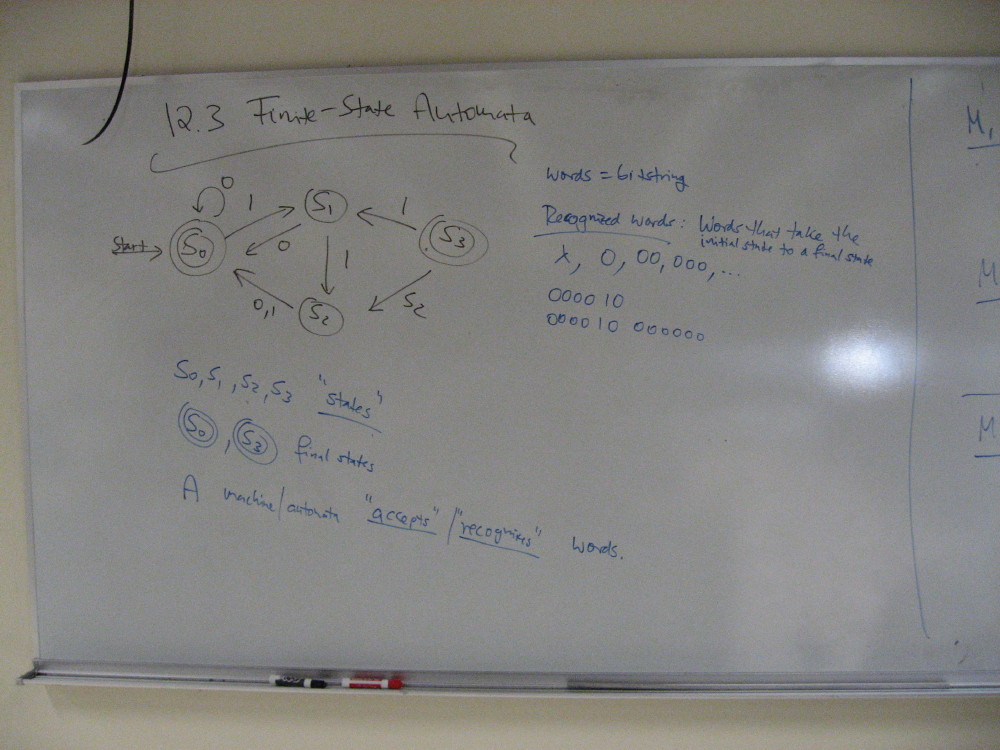 12.3 Finite-State Automata
0
1
S1
1
Start
S0
0
1
S3
0,1
S2
S2
words = bitstring
Recognized words: Words that take the
initial state to a final state
λ, 0, 00, 000, ...
0000 10
0000 10 000000
S0, S1, S2, S3 "states"
S0, S3 final states
A machine/automata "accepts"/"recognizes" words.
M1
M
M